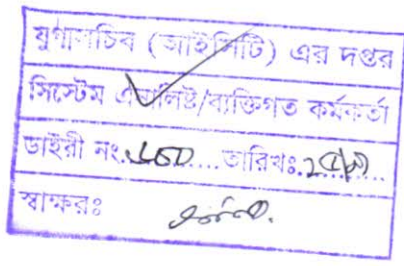 যুগ্মসচিব (আইসিটি) এর দপ্তর
সিস্টেম এনালিষ্ট/ব্যক্তিগত কর্মকর্তা
ডাইরী নং.............তারিখঃ.............
স্বাক্ষরঃ